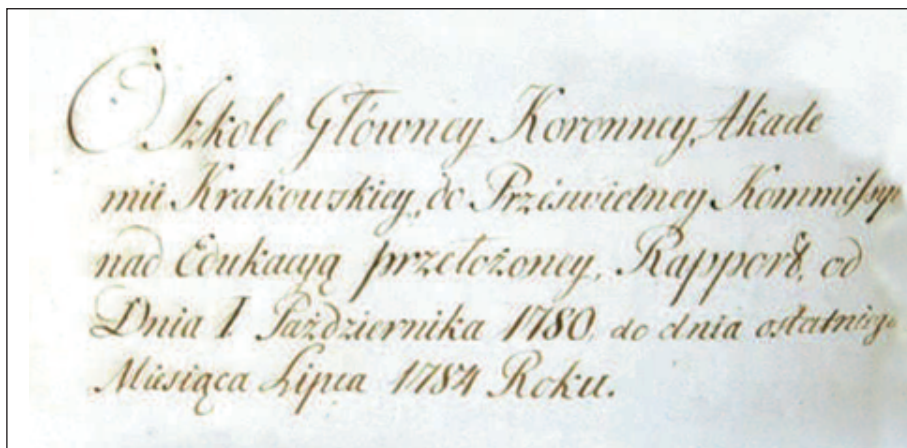 O Szkole Główney Koronney, Akade
mii Krakowskiey, do Prześwietney Kommissyi
nad Edukacyą przełożoney, Rapport, od
Dnia 1 Października 1780, do dnia ostatniego
Miesiąca Lipca 1784 Roku.